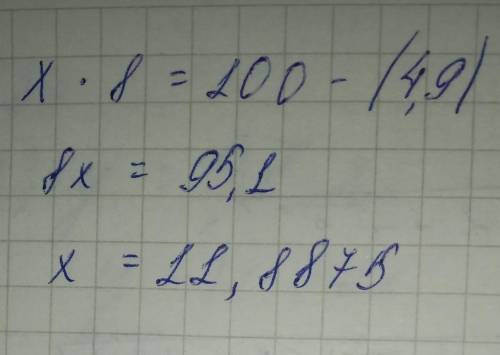 x · 8 = 100 - (4,9)
8x = 95,1
x = 11,8875